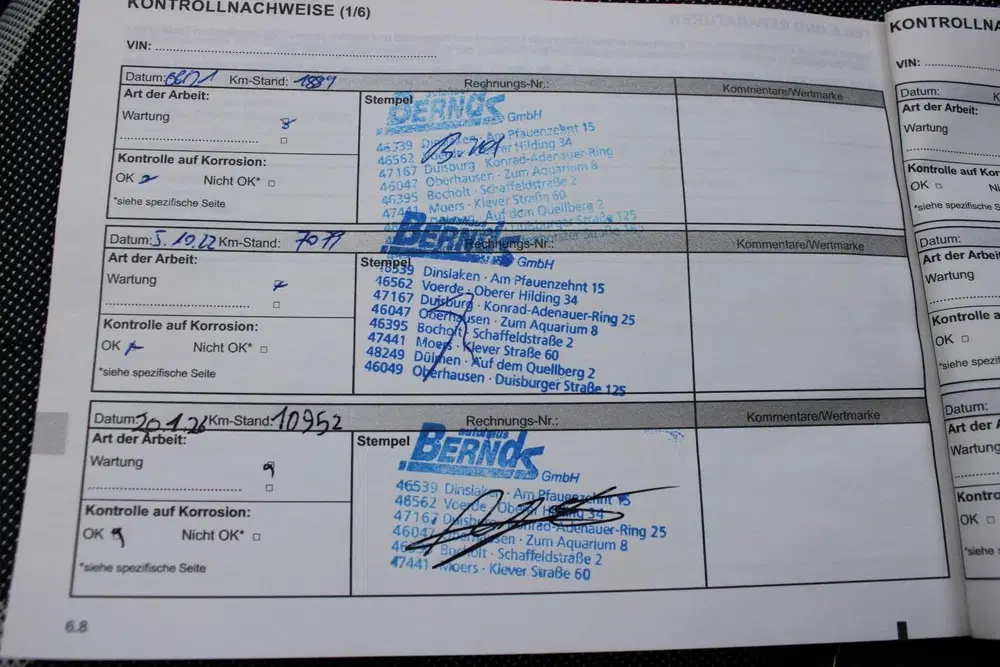 KONTROLLNACHWEISE (1/6)
VIN:
Datum: Km-Stand: 1889 Rechnungs-Nr.: Kommentare/Wertmarke
Art der Arbeit:
Wartung
Kontrolle auf Korrosion:
OK Nicht OK*
*siehe spezifische Seite
Stempel
autohaus
BERNDS
GmbH
46539 Dinslaken · Am Pfauenzehnt 15
46562 Voerde · Oberer Hilding 34
47167 Duisburg · Konrad-Adenauer-Ring
46047 Oberhausen · Zum Aquarium 8
46395 Bocholt · Schaffeldstraße 2
47441 Moers · Klever Straße 60
Auf dem Quellberg 2
Duisburger Straße 125
Datum: 5.10.22 Km-Stand: 7079 Rechnungs-Nr.: Kommentare/Wertmarke
Art der Arbeit:
Wartung
Kontrolle auf Korrosion:
OK Nicht OK*
*siehe spezifische Seite
Stempel
autohaus
BERNDS
GmbH
46539 Dinslaken · Am Pfauenzehnt 15
46562 Voerde · Oberer Hilding 34
47167 Duisburg · Konrad-Adenauer-Ring 25
46047 Oberhausen · Zum Aquarium 8
46395 Bocholt · Schaffeldstraße 2
47441 Moers · Klever Straße 60
48249 Dülmen · Auf dem Quellberg 2
46049 Oberhausen · Duisburger Straße 125
Datum: Km-Stand: 10952 Rechnungs-Nr.: Kommentare/Wertmarke
Art der Arbeit:
Wartung
Kontrolle auf Korrosion:
OK Nicht OK*
*siehe spezifische Seite
Stempel
autohaus
BERNDS
GmbH
46539 Dinslaken · Am Pfauenzehnt 15
46562 Voerde · Oberer Hilding 34
47167 Duisburg · Konrad-Adenauer-Ring 25
46047 Oberhausen · Zum Aquarium 8
Bocholt · Schaffeldstraße 2
47441 Moers · Klever Straße 60
6.8
KONTROLLNA
VIN:
Datum:
Art der Arbeit:
Wartung
Kontrolle auf
OK
*siehe spezifisch
Datum:
Art der Arbei
Wartung
Kontrolle a
OK
*siehe spezi
Datum:
Art der A
Wartung
Kontro
OK
*siehe